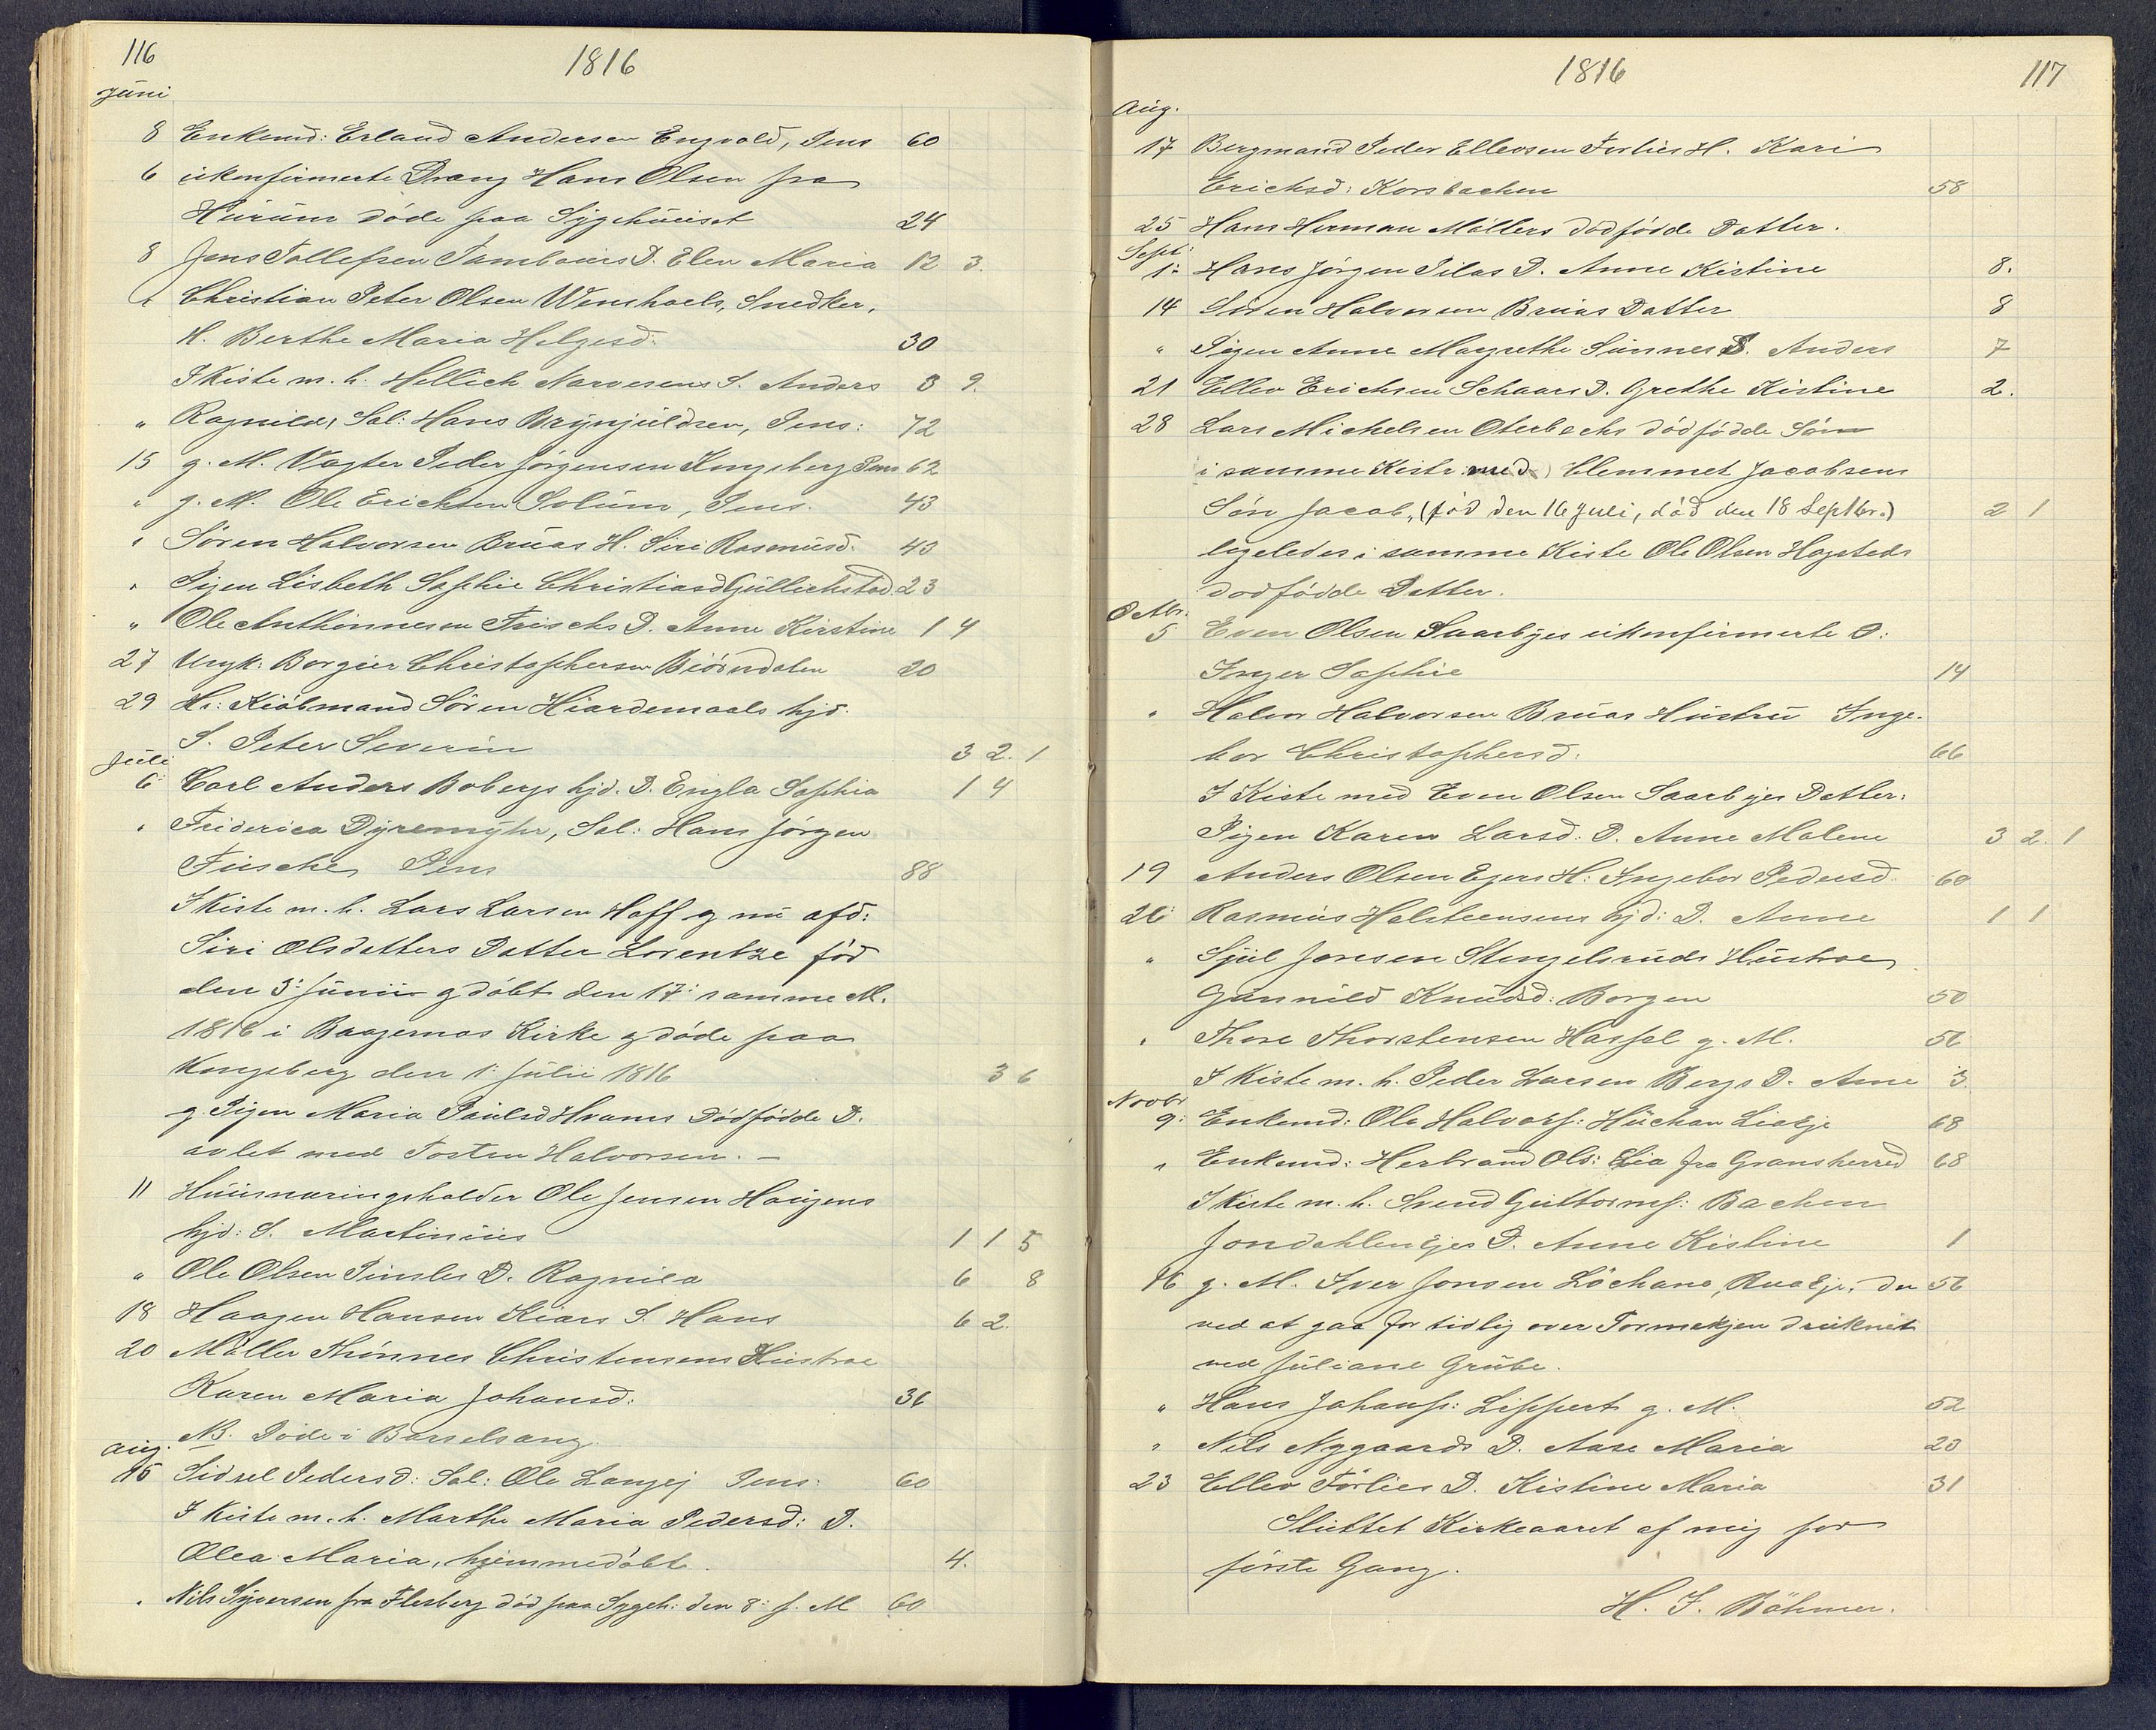 116
1816
Juni
8 Enkemd: Erland Andersen Engvold, Pens 60
6 ukonfirmerte Dreng Hans Olsen fra
Hurum döde paa Sygehuuset 24
8 Jens Tollefsen Tambours D. Elen Maria 12 3.
Christian Peter Olsen Wenshoels, Snedker,
H. Berthe Maria Helgesd: 30
I Kiste m. h. Hellich Narvesens S. Anders 3 9.
" Ragnild, Sal: Hans Brynjuldsen, Pens: 72
15 g. M. Vagter Peder Jörgensen Kongsberg Pens 62
" g. M. Ole Erichsen Solum, Pens. 43
" Sören Halvorsen Bruas H. Siri Rasmusd: 43
" Pigen Lisbeth Sophie Christiasd Gullichstad 23
" Ole Anthonnesen Frischs D. Anne Kirstine 1 4
27 Ungk: Borgier Christophersen Biörndalen 20
29 Hr: Kiöbmand Sören Hiardemaals hjd.
S. Peter Severin 3 2. 1
Juli
6 Carl Anders Bobergs hjd. D. Engla Sophia 1 4
" Friderica Dyremyhr, Sal: Hans Jörgen
Fusche, Pens 88
I Kiste m. h. Lars Larsen Hoff g nu afd:
Siri Olsdatters Datter Lorentze föd
den 3: Junii g döbt den 17: samme M.
1816 i Bragernas Kirke g döde paa
Kongsberg den 1: Julii 1816 3 6
g. Pigen Maria Paulsd Hvams Dödfödde D.
avlet med Torsten Halvorsen. —
11 Huusnaringsholder Ole Jensen Haugens
hjd: S. Martinius 1 1 5
" Ole Olsen Pinsles D. Ragnild 6 8
18 Haagen Hansen Kiars S. Hans 6 2.
20 Möller Thönnes Christensens Hustroe
Karen Maria Johansd: 36
NB. Döde i Barselsang.
Aug.
15 Sidsel Pedersd: Sal: Ole Langej Pens: 60
I Kiste m. h. Marthe Maria Pedersd: D.
Olea Maria, hjemmedöbt. 4.
" Nils Syversen fra Flesberg död paa Sygeh: den 8: s. M 60
1816
117
Aug.
17 Bergmand Peder Ellevsen Forlies H. Kari
Erichsd: Korsbachen 58
25 Hans Herman Möllers dödfödde Datter.
Sept:
1: Hans Jörgen Pilas D. Anne Kistine 8.
14 Sören Halvorsen Bruas Datter 8
" Pigen Anne Magrethe Sunnes S. Anders 7
21 Ellev Erichsen Schaars D. Grethe Kistine 2.
28 Lars Michelsen Oterbechs dödfödde Sön
i samme Kiste med Clemmet Jacobsens
Sön Jacob, (föd den 16 Juli, död den 18 Septbr.) 2 1
ligeledes i samme Kiste Ole Olsen Hagsteds
dodfödde Datter.
Octbr:
5 Even Olsen Saarbyes ukonfirmerte D:
Inger Sophie 14
" Halvor Halvorsen Bruas Hustru Inge-
bor Christophersd: 66
I Kiste med Even Olsen Saarbyes Datter:
Pigen Karen Larsd: D. Anne Malene 3 2. 1
19 Anders Olsen Egers H: Ingebor Pedersd. 60
26: Rasmus Halsteensens hjd: D. Anne 1 1
" Sjul Jonsen Stengelsruds Hustroe
Gunnild Knudsd: Borgen 50
" Thore Thorstensen Hassel g. M. 56
I Kiste m. h. Peder Larsen Bergs D. Anne 3
Novbr
9: Enkemd: Ole Halvors: Huchan Lieeje 68
" Enkemd: Herbrand Ols: Lia fra Gransherred 68
I Kiste m. h. Svend Guttormss: Bachen
Jondahlen Ejes D. Anne Kistine 1
16 g. M. Iver Jonsen Löchans, Rua Eje, der 56
ved at gaa for tidlig over Tormekjen druknet
ved Juliane Grube.
" Hans Johanss: Lippert g. M. 52
" Nils Nygaards D. Aase Maria 23
23 Ellev Förlies D. Kistine Maria 31
Sluttet Kirkeaaret af mig for
förste Gang.
H. F. Böhmer.